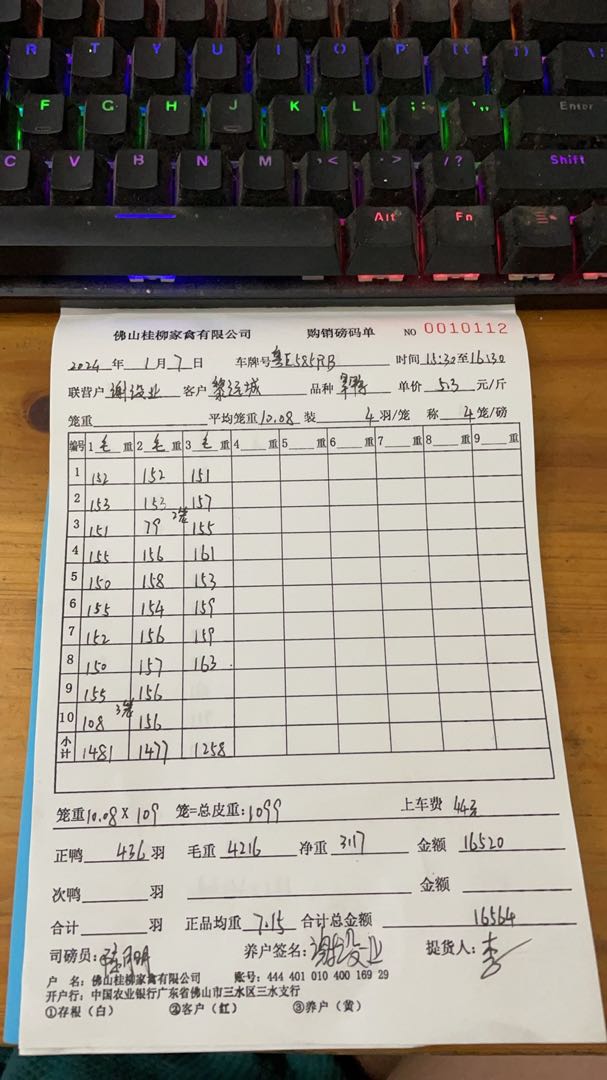 R T Y U I O P [{ ]} \
F G H J K L ;: '" Enter
C V B N M ,< .> /? Shift
Alt Fn
佛山桂柳家禽有限公司 购销磅码单 NO 0010112
2024 年 1 月 7 日 车牌号 粤E585 时间 15:30至16:30
联营户 谢设业 客户 黎运城 品种 单价 5.3 元/斤
笼重 平均笼重 10.08 装 4 羽/笼 称 4 笼/磅
编号 1 毛 重 2 毛 重 3 毛 重 4 重 5 重 6 重 7 重 8 重 9 重
1 152 152 151
2 153 153 157
3 151 79 2笼 155
4 155 156 161
5 150 158 153
6 155 154 159
7 152 156 159
8 150 157 163
9 155 156
10 108 3笼 156
小计 1481 1477 1258
笼重 10.08 X 109 笼=总皮重: 1099 上车费 44元
正鸭 436 羽 毛重 4216 净重 3117 金额 16520
次鸭 羽 金额
合计 羽 正品均重 7.15 合计总金额 16564
司磅员: 养户签名: 谢设业 提货人: 李
户 名: 佛山桂柳家禽有限公司 账号: 444 401 010 400 169 29
开户行: 中国农业银行广东省佛山市三水区三水支行
①存根（白） ②客户（红） ③养户（黄）